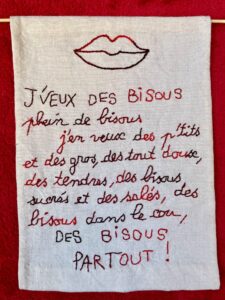 J'VEUX DES BISOUS
plein de bisous
j'en veux des p'tits
et des gros, des tout doux,
des tendres, des bisous
sucrés et des salés, des
bisous dans le cou,
DES BISOUS
PARTOUT !